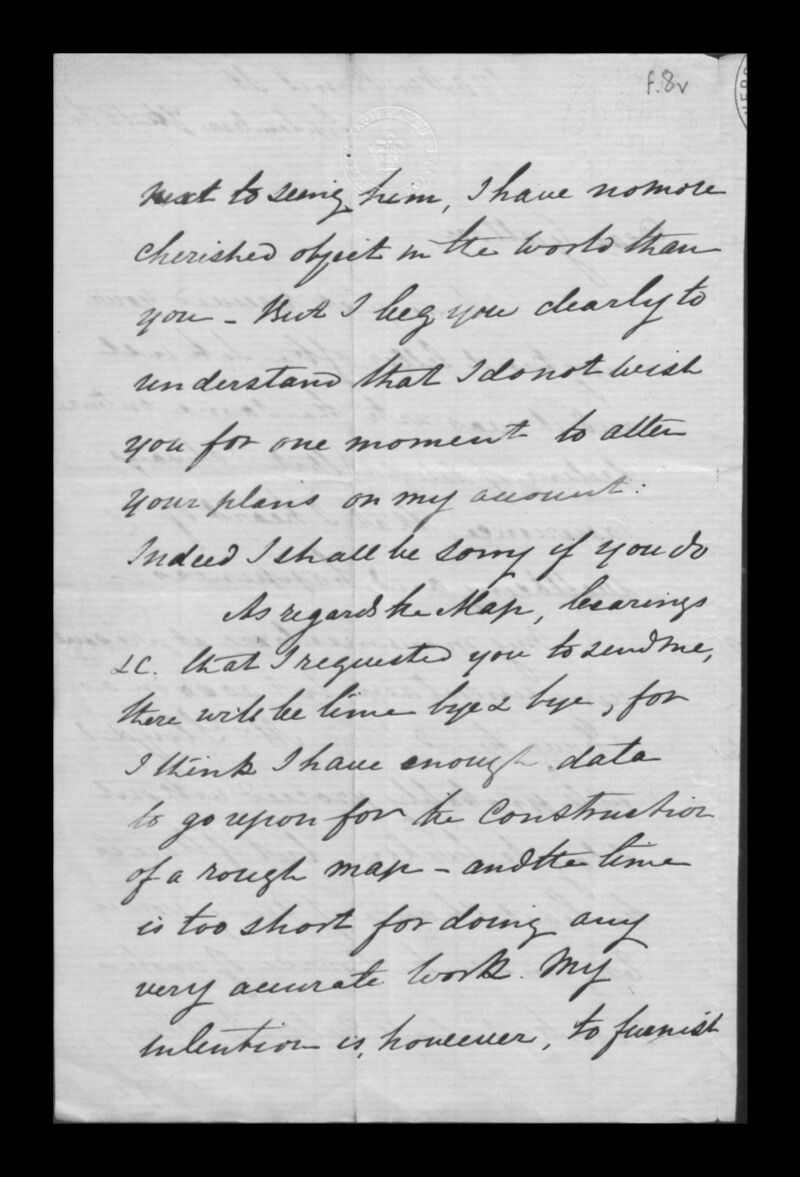 f.8v
next to seeing him, I have no more
cherished object in the world than
you - But I beg you clearly to
understand that I do not wish
you for one moment to alter
your plans on my account:
Indeed I shall be sorry if you do
As regards the Map, bearings
&c. that I requested you to send me,
there will be time bye & bye, for
I think I have enough data
to go upon for the construction
of a rough map - and the time
is too short for doing any
very accurate work. My
intention is, however, to furnish